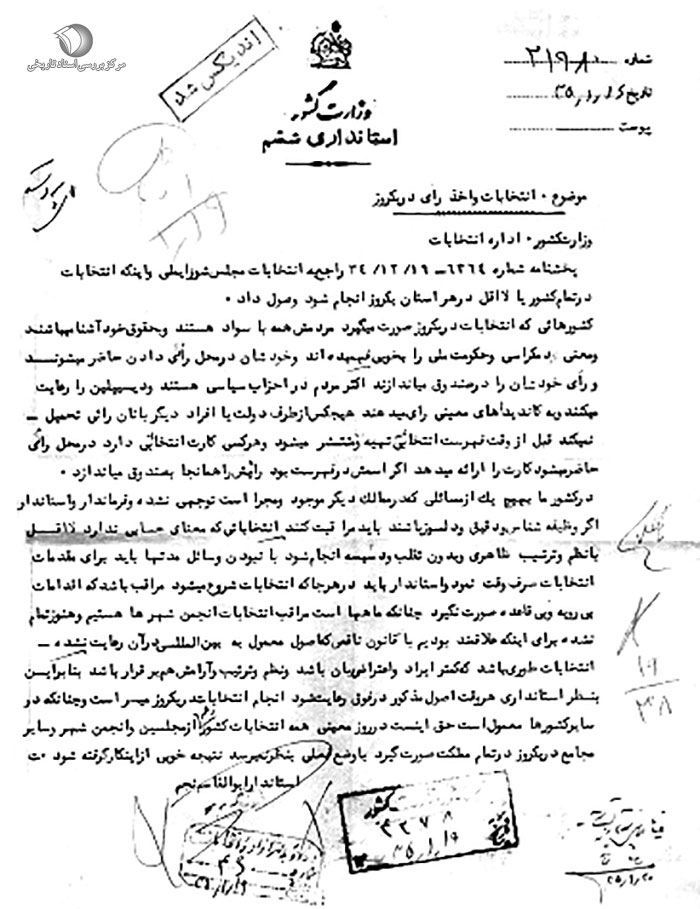 مرکز بررسی اسناد تاریخی
اندیکس شد
وزارت کشور
استانداری ششم
شماره ۲۱۹۸۰
تاریخ
پیوست
موضوع ۰ انتخابات واخذ رای دریکروز
وزارتکشور ۰ اداره انتخابات
بخشنامه شماره ۶۲۶۴ـ ۱۹/ ۱۲/ ۳۴ راجع به انتخابات مجلس شورایملی واینکه انتخابات
درتمام کشور یا لااقل درهر استان یکروز انجام شود وصول داد ۰
کشورهائی که انتخابات دریکروز صورت میگیرد مردمش همه با سواد هستند وبحقوق خود آشنا میباشند
ومعنی دمکراسی وحکومت ملی را بخوبی فهمیده اند وخودشان درمحل رأی دادن حاضر میشوند
و رأی خودشان را درصندوق میاندازند اکثر مردم در احزاب سیاسی هستند ودیسیپلین را رعایت
میکنند وبه کاندیداهای معینی رای میدهند هیچکس ازطرف دولت یا افراد دیگر بانان رائی تحمیل ـ
نمیکند قبل از وقت فهرست انتخاباتی تهیه ومنتشر میشود وهرکسی کارت انتخاباتی دارد درمحل رأی
حاضر میشود کارت را ارائه میدهد اگر اسمش درفهرست بود رایش را همانجا بصندوق میاندازد ۰
درکشور ما بهیچ یك ازمسائلی که درممالك دیگر موجود ومجرا است توجهی نشده وفرماندار واستاندار
اگر وظیفه شناس بود قیق ودلسوز باشند باید مراقبت کنند انتخاباتی که معنای حسابی ندارد لااقل
بانظم وترتیب ظاهری وبدون تقلب ودسیسه انجام شود با نبودن وسائل مدتها باید برای مقدمات
انتخابات صرف وقت نمود واستاندار باید درهرجا که انتخابات شروع میشود مراقب باشد که اقدامات
بی رویه وبی قاعده صورت نگیرد چنانکه ماهها است مراقب انتخابات انجمن شهر ها هستیم وهنوز تمام
نشده برای اینکه علاقمند بودیم با قانون ناقص که اصول معمول به بین المللی درآن رعایت نشده ـ
انتخابات طوری باشد که کمتر ایراد واعتراض بان باشد ونظم وترتیب وآرامش هم برقرار باشد بنابراین
بنظر استانداری هروقت اصول مذکور درفوق رعایت شود انجام انتخابات دریکروز میسر است وچنانکه در
سایر کشورها معمول است حق اینست درروز معینی همه انتخابات کشور ازمجلسین وانجمن شهر وسایر
مجامع دریکروز درتمام مملکت صورت گیرد با وضع فعلی بنظر نمیرسد نتیجه خوبی ازاینکار گرفته شود ۰ ت
استاندار ابوالقاسم نجم
کشور
۴۲۷۸
۳۵/۱/۱۹